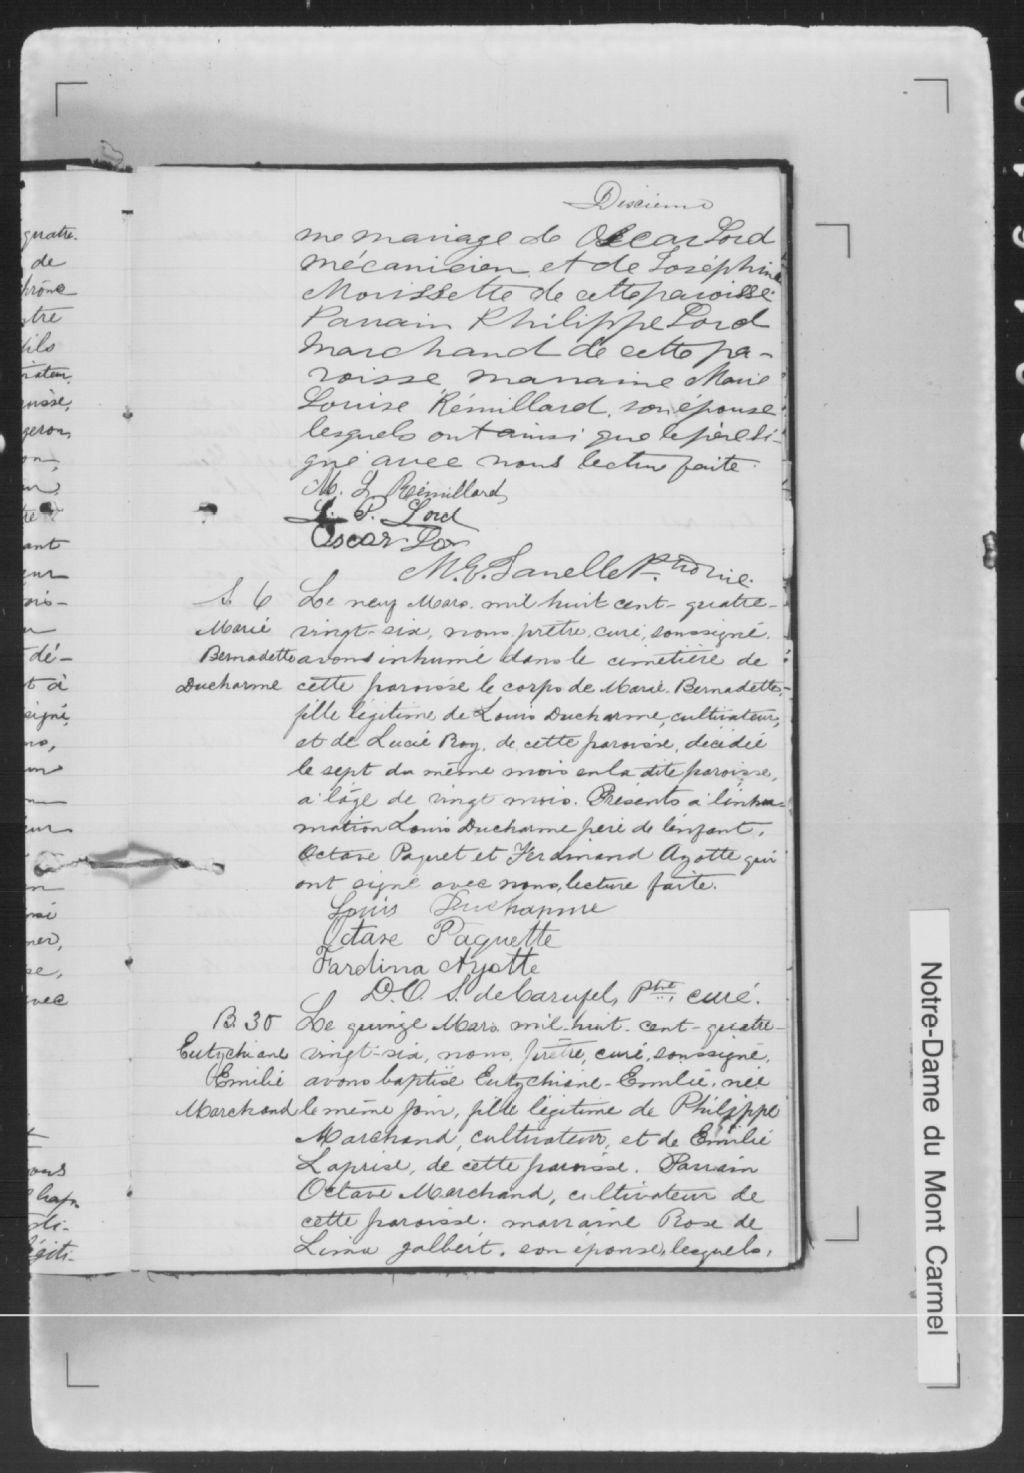 Dixième
me mariage de Oscar Lord
mécanicien et de Joséphine
Morissette de cette paroisse.
Parrain Philippe Lord
marchand de cette pa-
roisse, marraine Marie
Louise Rémillard, son épouse
lesquels ont ainsi que le père si-
gné avec nous lecture faite.
M. L. Rémillard
L. P. Lord
Oscar Lor
M. E. Janelle Ptre
S. 6
Marie
Bernadette
Ducharme
Le neuf Mars mil huit cent-quatre-
vingt-six, nous prêtre, curé, soussigné,
avons inhumé dans le cimetière de
cette paroisse le corps de Marie Bernadette,
fille légitime de Louis Ducharme, cultivateur,
et de Lucie Roy, de cette paroisse, décédée
le sept du même mois en la dite paroisse,
à l'âge de vingt mois. Présents à l'inhu-
mation Louis Ducharme père de l'enfant,
Octave Paquet et Ferdinand Ayotte qui
ont signé avec nous, lecture faite.
Louis Ducharme
Octave Paquette
Fardina Ayotte
D. O. S. de Carufel, Ptre, curé.
B. 30
Eutychiane
Emilie
Marchand
Le quinze Mars mil-huit-cent-quatre-
vingt-six, nous, prêtre, curé, soussigné,
avons baptisé Eutychiane-Emilie, née
le même jour, fille légitime de Philippe
Marchand, cultivateur, et de Emilie
Laprise, de cette paroisse. Parrain
Octave Marchand, cultivateur de
cette paroisse. marraine Rose de
Lima Jalbert, son épouse, lesquels,
quatre-
de
tre
fils
ant
dé-
t à
avec
Notre-Dame du Mont Carmel